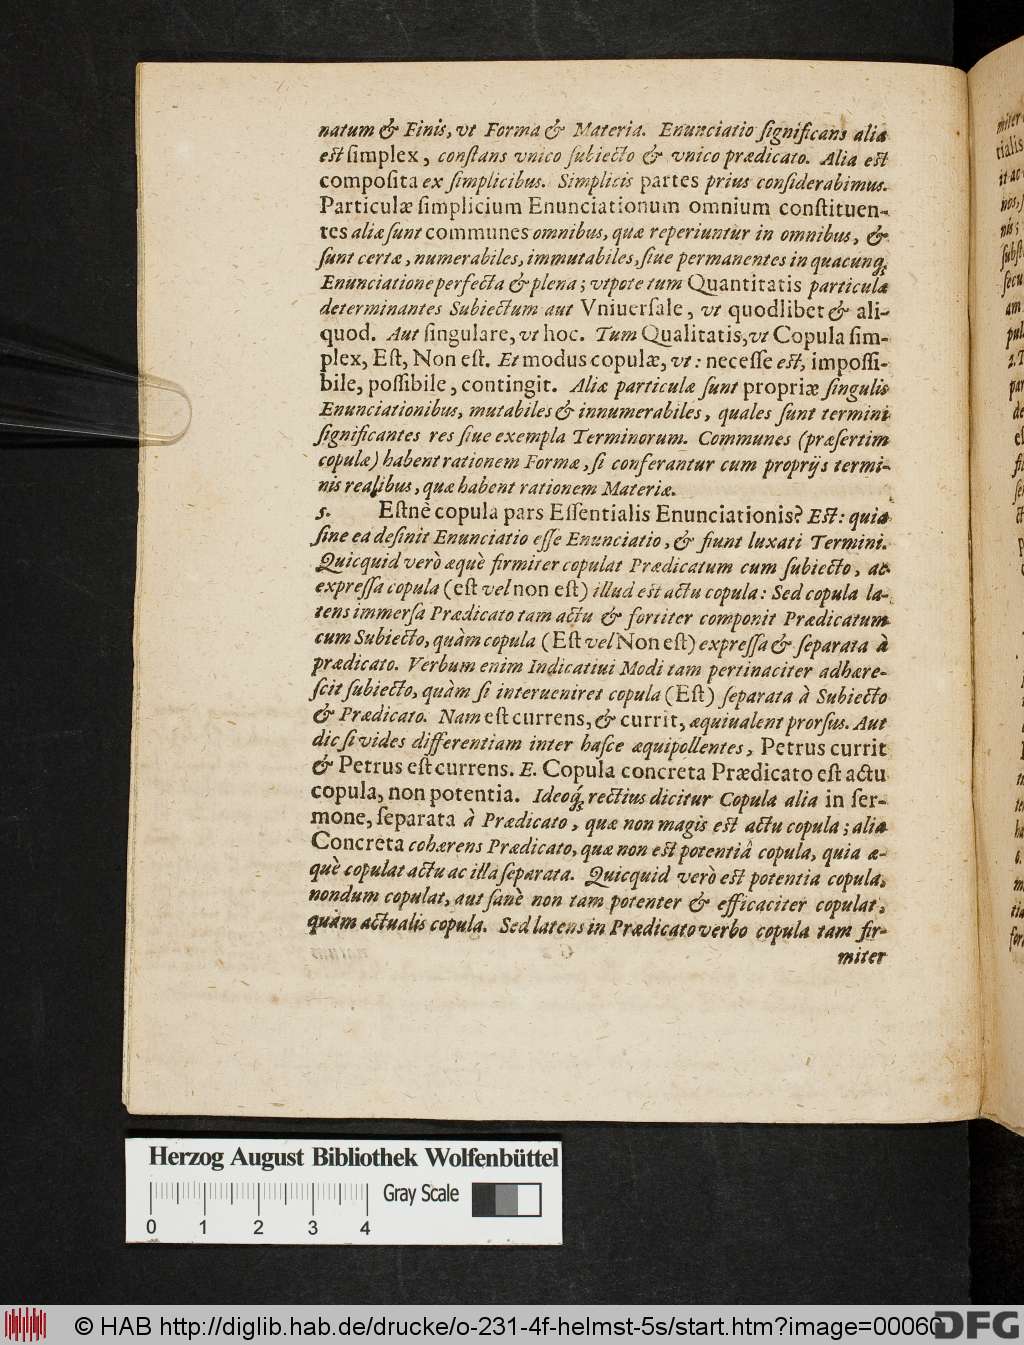 natum & Finis, vt Forma & Materia. Enunciatio ſignificans alia
eſt ſimplex, conſtans vnico ſubiecto & vnico prædicato. Alia eſt
compoſita ex ſimplicibus. Simplicis partes prius conſiderabimus.
Particulæ ſimplicium Enunciationum omnium conſtituen-
tes aliæ ſunt communes omnibus, quæ reperiuntur in omnibus, &
ſunt certæ, numerabiles, immutabiles, ſiue permanentes in quacunq;
Enunciatione perfecta & plena; vtpote tum Quantitatis particulæ
determinantes Subiectum aut Vniuerſale, vt quodlibet & ali-
quod. Aut ſingulare, vt hoc. Tum Qualitatis, vt Copula ſim-
plex, Eſt, Non eſt. Et modus copulæ, vt: neceſſe eſt, impoſſi-
bile, poſſibile, contingit. Aliæ particulæ ſunt propriæ ſingulis
Enunciationibus, mutabiles & innumerabiles, quales ſunt termini
ſignificantes res ſiue exempla Terminorum. Communes (præſertim
copulæ) habent rationem Formæ, ſi conferantur cum proprijs termi-
nis realibus, quæ habent rationem Materiæ.
5. Eſtnè copula pars Eſſentialis Enunciationis? Eſt: quia
ſine ea deſinit Enunciatio eſſe Enunciatio, & fiunt luxati Termini.
Quicquid verò æquè firmiter copulat Prædicatum cum ſubiecto, ac
expreſſa copula (eſt vel non eſt) illud eſt actu copula: Sed copula la-
tens immerſa Prædicato tam actu & fortiter componit Prædicatum
cum Subiecto, quàm copula (Eſt vel Non eſt) expreſſa & ſeparata à
prædicato. Verbum enim Indicatiui Modi tam pertinaciter adhære-
ſcit ſubiecto, quàm ſi interueniret copula (Eſt) ſeparata à Subiecto
& Prædicato. Nam eſt currens, & currit, æquiualent prorſus. Aut
dic ſi vides differentiam inter haſce æquipollentes, Petrus currit
& Petrus eſt currens. E. Copula concreta Prædicato eſt actu
copula, non potentia. Ideoq́; rectius dicitur Copula alia in ſer-
mone, ſeparata à Prædicato, quæ non magis eſt actu copula; alia
Concreta cohærens Prædicato, quæ non eſt potentiâ copula, quia æ-
què copulat actu ac illa ſeparata. Quicquid verò eſt potentia copula,
nondum copulat, aut ſanè non tam potenter & efficaciter copulat,
quàm actualis copula. Sed latens in Prædicato verbo copula tam fir-
miter
Herzog August Bibliothek Wolfenbüttel
Gray Scale
0 1 2 3 4
© HAB http://diglib.hab.de/drucke/o-231-4f-helmst-5s/start.htm?image=00060
DFG